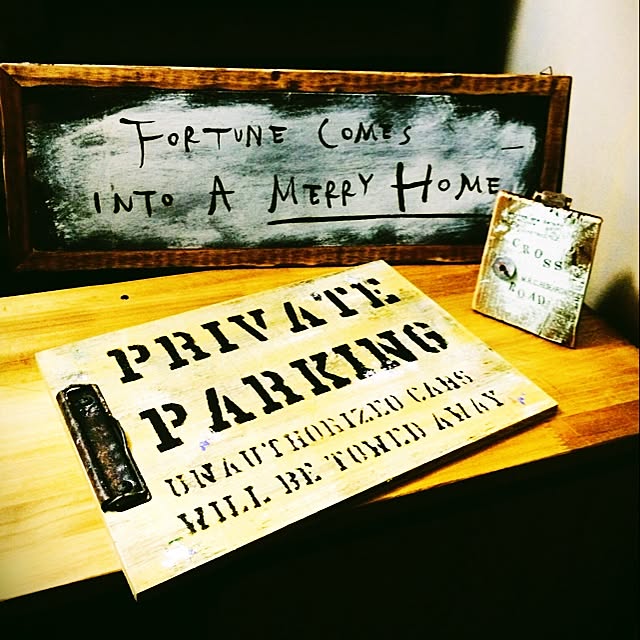 FORTUNE COMES
INTO A MERRY HOME
CROSS
ROAD
PRIVATE
PARKING
UNAUTHORIZED CARS
WILL BE TOWED AWAY